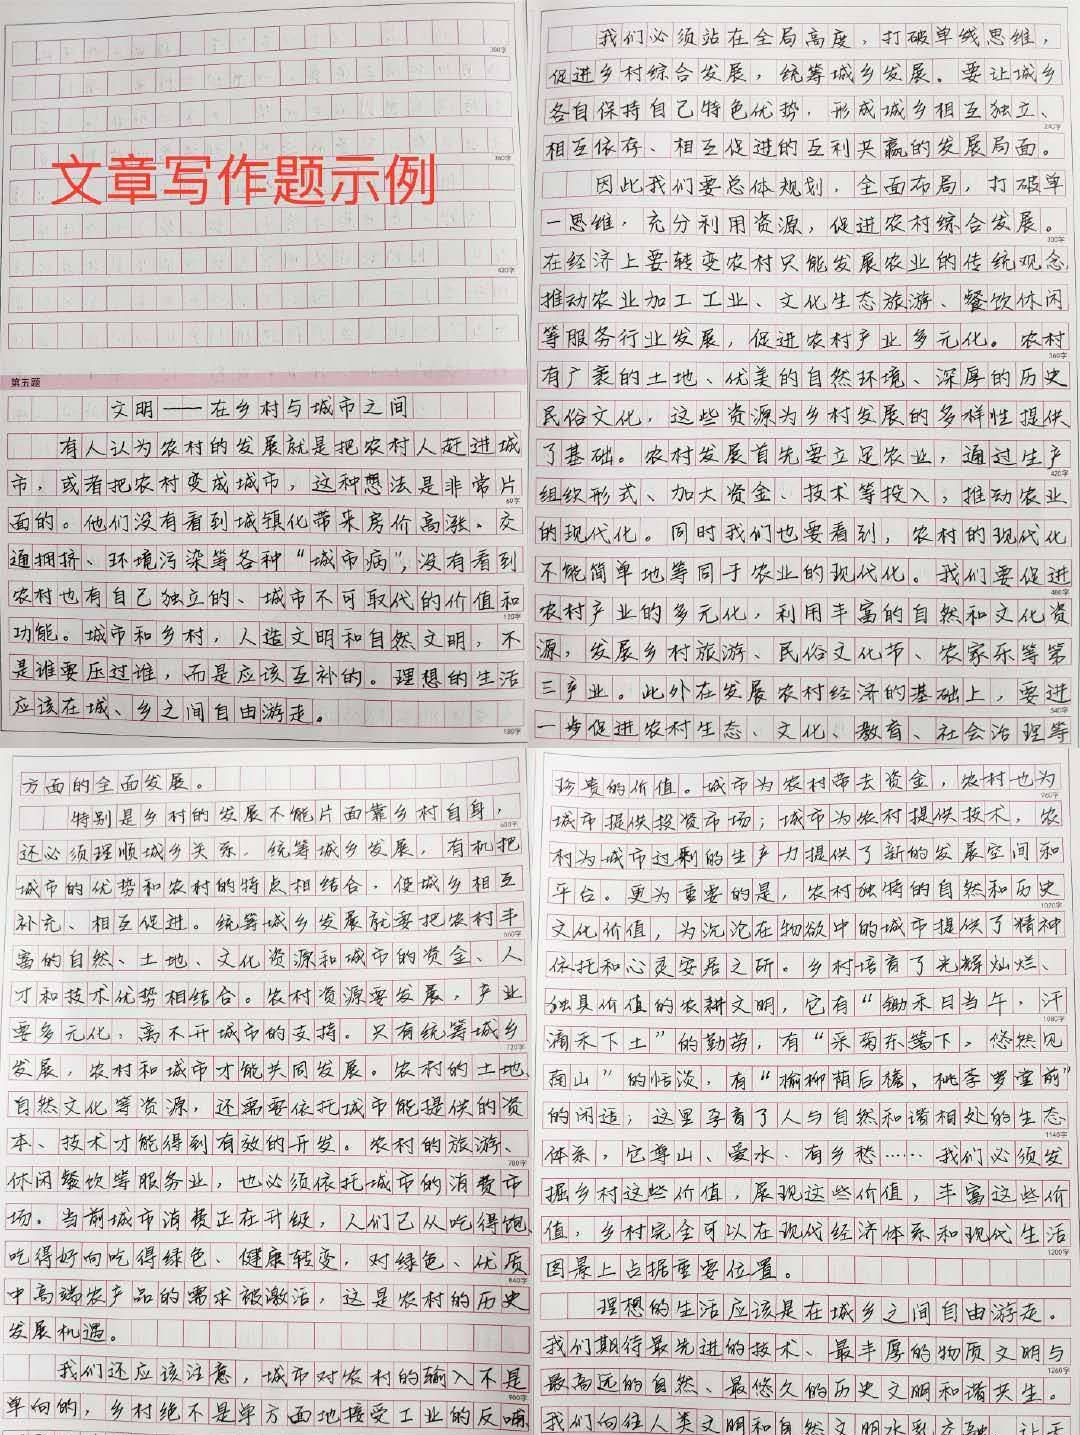 300字
360字
文章写作题示例
420字
第五题
文明——在乡村与城市之间
有人认为农村的发展就是把农村人赶进城
市，或者把农村变成城市，这种想法是非常片
60字
面的。他们没有看到城镇化带来房价高涨、交
通拥挤、环境污染等各种“城市病”，没有看到
农村也有自己独立的、城市不可取代的价值和
120字
功能。城市和乡村，人造文明和自然文明，不
是谁要压过谁，而是应该互补的。理想的生活
应该在城、乡之间自由游走。
180字
我们必须站在全局高度，打破单线思维，
促进乡村综合发展，统筹城乡发展。要让城乡
各自保持自己特色优势，形成城乡相互独立、
240字
相互依存、相互促进的互利共赢的发展局面。
因此我们要总体规划，全面布局，打破单
一思维，充分利用资源，促进农村综合发展。
300字
在经济上要转变农村只能发展农业的传统观念
推动农业加工工业、文化生态旅游、餐饮休闲
等服务行业发展，促进农村产业多元化。农村
360字
有广袤的土地、优美的自然环境、深厚的历史
民俗文化，这些资源为乡村发展的多样性提供
了基础。农村发展首先要立足农业，通过生产
420字
组织形式、加大资金、技术等投入，推动农业
的现代化。同时我们也要看到，农村的现代化
不能简单地等同于农业的现代化。我们要促进
480字
农村产业的多元化，利用丰富的自然和文化资
源，发展乡村旅游、民俗文化节、农家乐等第
三产业。此外在发展农村经济的基础上，要进
540字
一步促进农村生态、文化、教育、社会治理等
方面的全面发展。
特别是乡村的发展不能片面靠乡村自身，
600字
还必须理顺城乡关系，统筹城乡发展，有机把
城市的优势和农村的特点相结合，使城乡相互
补充、相互促进。统筹城乡发展就要把农村丰
660字
富的自然、土地、文化资源和城市的资金、人
才和技术优势相结合。农村资源要发展，产业
要多元化，离不开城市的支持。只有统筹城乡
720字
发展，农村和城市才能共同发展。农村的土地、
自然文化等资源，还需要依托城市能提供的资
本、技术才能得到有效的开发。农村的旅游、
780字
休闲餐饮等服务业，也必须依托城市的消费市
场。当前城市消费正在升级，人们已从吃得饱、
吃得好向吃得绿色、健康转变，对绿色、优质
840字
中高端农产品的需求被激活，这是农村的历史
发展机遇。
我们还应该注意，城市对农村的输入不是
900字
单向的，乡村绝不是单方面地接受工业的反哺
珍贵的价值。城市为农村带去资金，农村也为
960字
城市提供投资市场；城市为农村提供技术，农
村为城市过剩的生产力提供了新的发展空间和
平台。更为重要的是，农村独特的自然和历史
1020字
文化价值，为沉沦在物欲中的城市提供了精神
依托和心灵安居之所。乡村培育了光辉灿烂、
独具价值的农耕文明，它有“锄禾日当午，汗
1080字
滴禾下土”的勤劳，有“采菊东篱下，悠然见
南山”的恬淡，有“榆柳荫后檐，桃李罗堂前”
的闲适；这里孕育了人与自然和谐相处的生态
1140字
体系，它尊山、爱水、有乡愁……我们必须发
掘乡村这些价值，展现这些价值，丰富这些价
值，乡村完全可以在现代经济体系和现代生活
1200字
图景上占据重要位置。
理想的生活应该是在城乡之间自由游走。
我们期待最先进的技术、最丰厚的物质文明与
1260字
最高远的自然、最悠久的历史文明和谐共生。
我们向往人类文明和自然文明水乳交融，让天